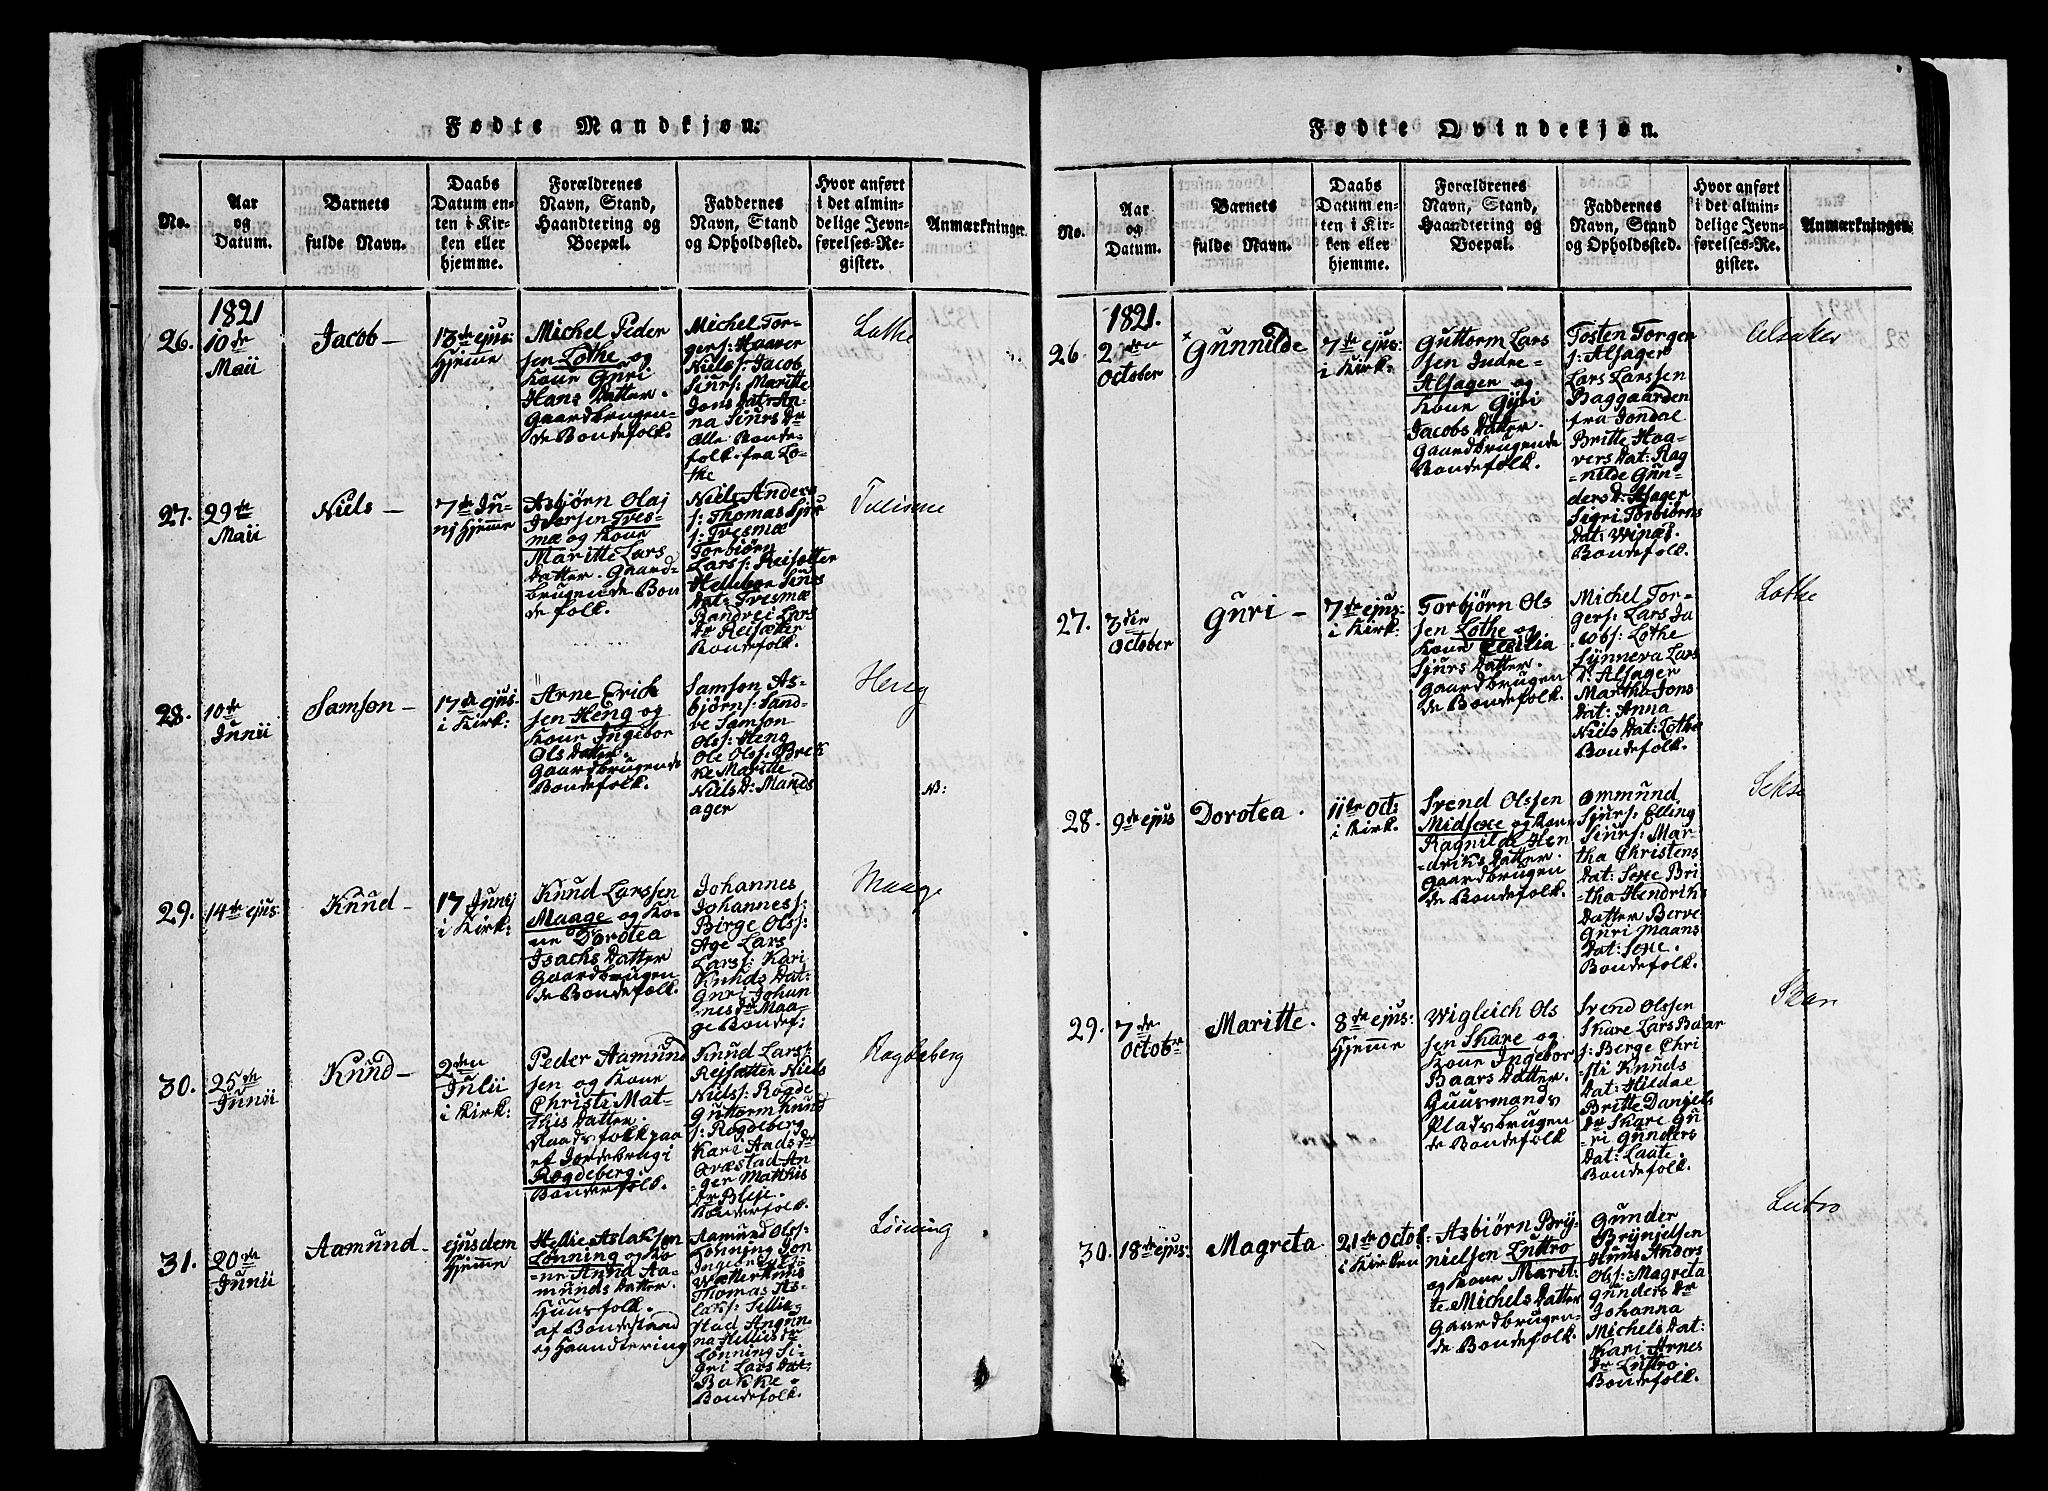 Fødte Mandkjøn.
No.
Aar
og
Datum.
Barnets
fulde Navn.
Daabs
Datum en-
ten i Kir-
ken eller
hjemme.
Forældrenes
Navn, Stand,
Haandtering og
Boepæl.
Faddernes
Navn, Stand
og Opholdssted.
Hvor anført
i det almin-
delige Jevn-
førelses-Re-
gister.
Anmærkninger.
1821
26.
10de
Maii
Jacob
13de ejus:
Hjemme
Michel Peder
sen Lothe og
Kone Guri
Hans Datter.
Gaardbrugen-
de Bondefolk.
Michel Tor-
gers: Haaver
Niels: Jacob
Siurs: Maritte
Jons Dat: An-
na Siurs Dr
Alle Bonde-
folk fra Lo-
the
Lothe
27.
29de
Maii
Niels
7de Ju-
nj Hjemme
Asbjørn Olaj
Iversen Tves-
mæ og Kone
Maritte Lars
Datter. Gaard-
brugende Bon
de folk.
Niels Anders
s: Thomas Sjur
s: Tvesmæ
Torbiørn
Lars: Reisætter
Hellebor Siurs
Dat: Tvesmæ
Randvei Lars
Dr Reisæter
Bondefolk.
28.
10de
Junii
Samson
17de ejus:
i Kirk:
Arne Erick
sen Heng og
Kone Ingebor
Ols Datter.
Gaardbrugende
Bondefolk.
Samson As-
bjørns: Sand-
ve Samson
Ols: Heng
Ole Ols: Brek
ke Maritte
Niels D: Mands
ager
N:
29.
14de ejus
Knud
17 Junij
i Kirk:
Knud Larssen
Maage og Ko-
ne Dorotea
Isachs Datter
Gaardbrugen
de Bondefolk.
Johannes
Johanness:
Birge Ols:
Age Lars
Lars: Kari
Knuds Dat:
Guri Johan
nes dr Maa-
ge Bondef:
Maage
30.
25de
Junii
Knud
2den
Julii
i Kirk:
Peder Aamund
sen og Kone
Christi Mat-
this Datter.
Huusfolk paa
et Jordebrug i
Rogdeberg.
Bondefolk.
Knud Lars:
Reisætter Niels
Niels: Rogde
Guttorm Knud
s: Rogdeberg
Kari Aads dr
Qvæstad An-
ger Matthis
Dr Bleje.
Bondefolk.
Rogdeberg
31.
20de
Junii
Aamund
ejusdem
Hjemme
Hellie Aslaksen
Lønning og Ko
ne Anna Aa-
munds Datter.
Huusfolk.
af Bondestand
og Haandtering
Aamund Ols:
Lønning Jon
Thomas As-
laks: Sellie-
stad Angun-
na Hellies dr
Lønning Si-
gri Lars Dat:
Bakke.
Bondefolk.
Lønning
Fødte Qvindekjøn.
No.
Aar
og
Datum.
Barnets
fulde Navn.
Daabs
Datum en-
ten i Kir-
ken eller
hjemme.
Forældrenes
Navn, Stand,
Haandtering og
Boepæl.
Faddernes
Navn, Stand
og Opholdssted.
Hvor anført
i det almin-
delige Jevn-
førelses-Re-
gister.
Anmærkninger.
1821.
26
2den
October
Gunnilde
7de ejus:
i Kirk:
Guttorm Lars
sen Indre-
Alsager og
Kone Gyri
Jacobs Datter.
Gaardbrugende
Bondefolk.
Tosten Torger
s: Alsager
Lars Larssen
Baggaarden
fra Jondal
Britte Haa-
vers Dat: Rag
nilde Gun-
ders D: Alsager
Sigri Torbiørns
Dat: Winæs.
Bondefolk.
Alsaker
27.
3die
October
Guri
7de ejus:
i Kirk:
Torbjørn Ols
sen Lothe og
Kone Cecilia
Sjurs Datter.
Gaardbrugen
de Bondefolk.
Michel Tor-
gers: Lars Ja
cobs: Lothe
Synneva Lars
D: Alsager
Martha Jons
Dat: Anna
Niels Dat: Lothe
Bondefolk.
Lothe
28.
9de ejus
Dorotea.
11te Oct:
i Kirk.
Svend Olssen
Midsexe og Kone
Ragnilde Hen
driks Datter.
Gaardbrugen
de Bondefolk.
Ommund
Sjurs: Elling
Siurs: Mar-
tha Christens
Dat: Sexe Bri
tha Hendriks
Datter Berve
Guri Maans
Dat: Sexe.
Bondefolk.
Sekse
29.
7de
Octobr
Maritte.
8de ejus:
Hjemme
Wigleich Ols
sen Skare og
Kone Ingebor
Baars Datter.
Huusmands
Pladsbrugen
de Bondefolk
Svend Olssen
Skare Lars Baar
s: Berge Chri
sti Knuds
Dat: Hildae
Britte Daniels
dr Skare Gu
ri Gunders
Dat: Laate.
Bondefolk.
Skare
30.
18de ejus:
Magreta
21de Octo:
i Kirken
Asbiørn Bry-
nielsen Luttro
og Kone Marit
te Michels Datter
Gaardbrugen-
de Bondefolk.
Gunder
Brynjelsen
Huus Anders
Ols: Magreta
Gunders Dr
Johanna
Michels Dat:
Kari Arnes
Dr Luttro.
Bondefolk.
Lutro